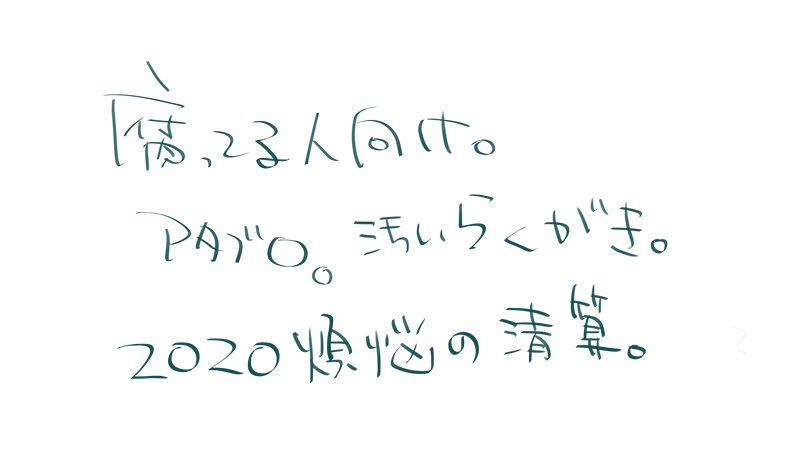 腐ってる人向け。
PAブロ。汚いらくがき。
2020煩悩の清算。